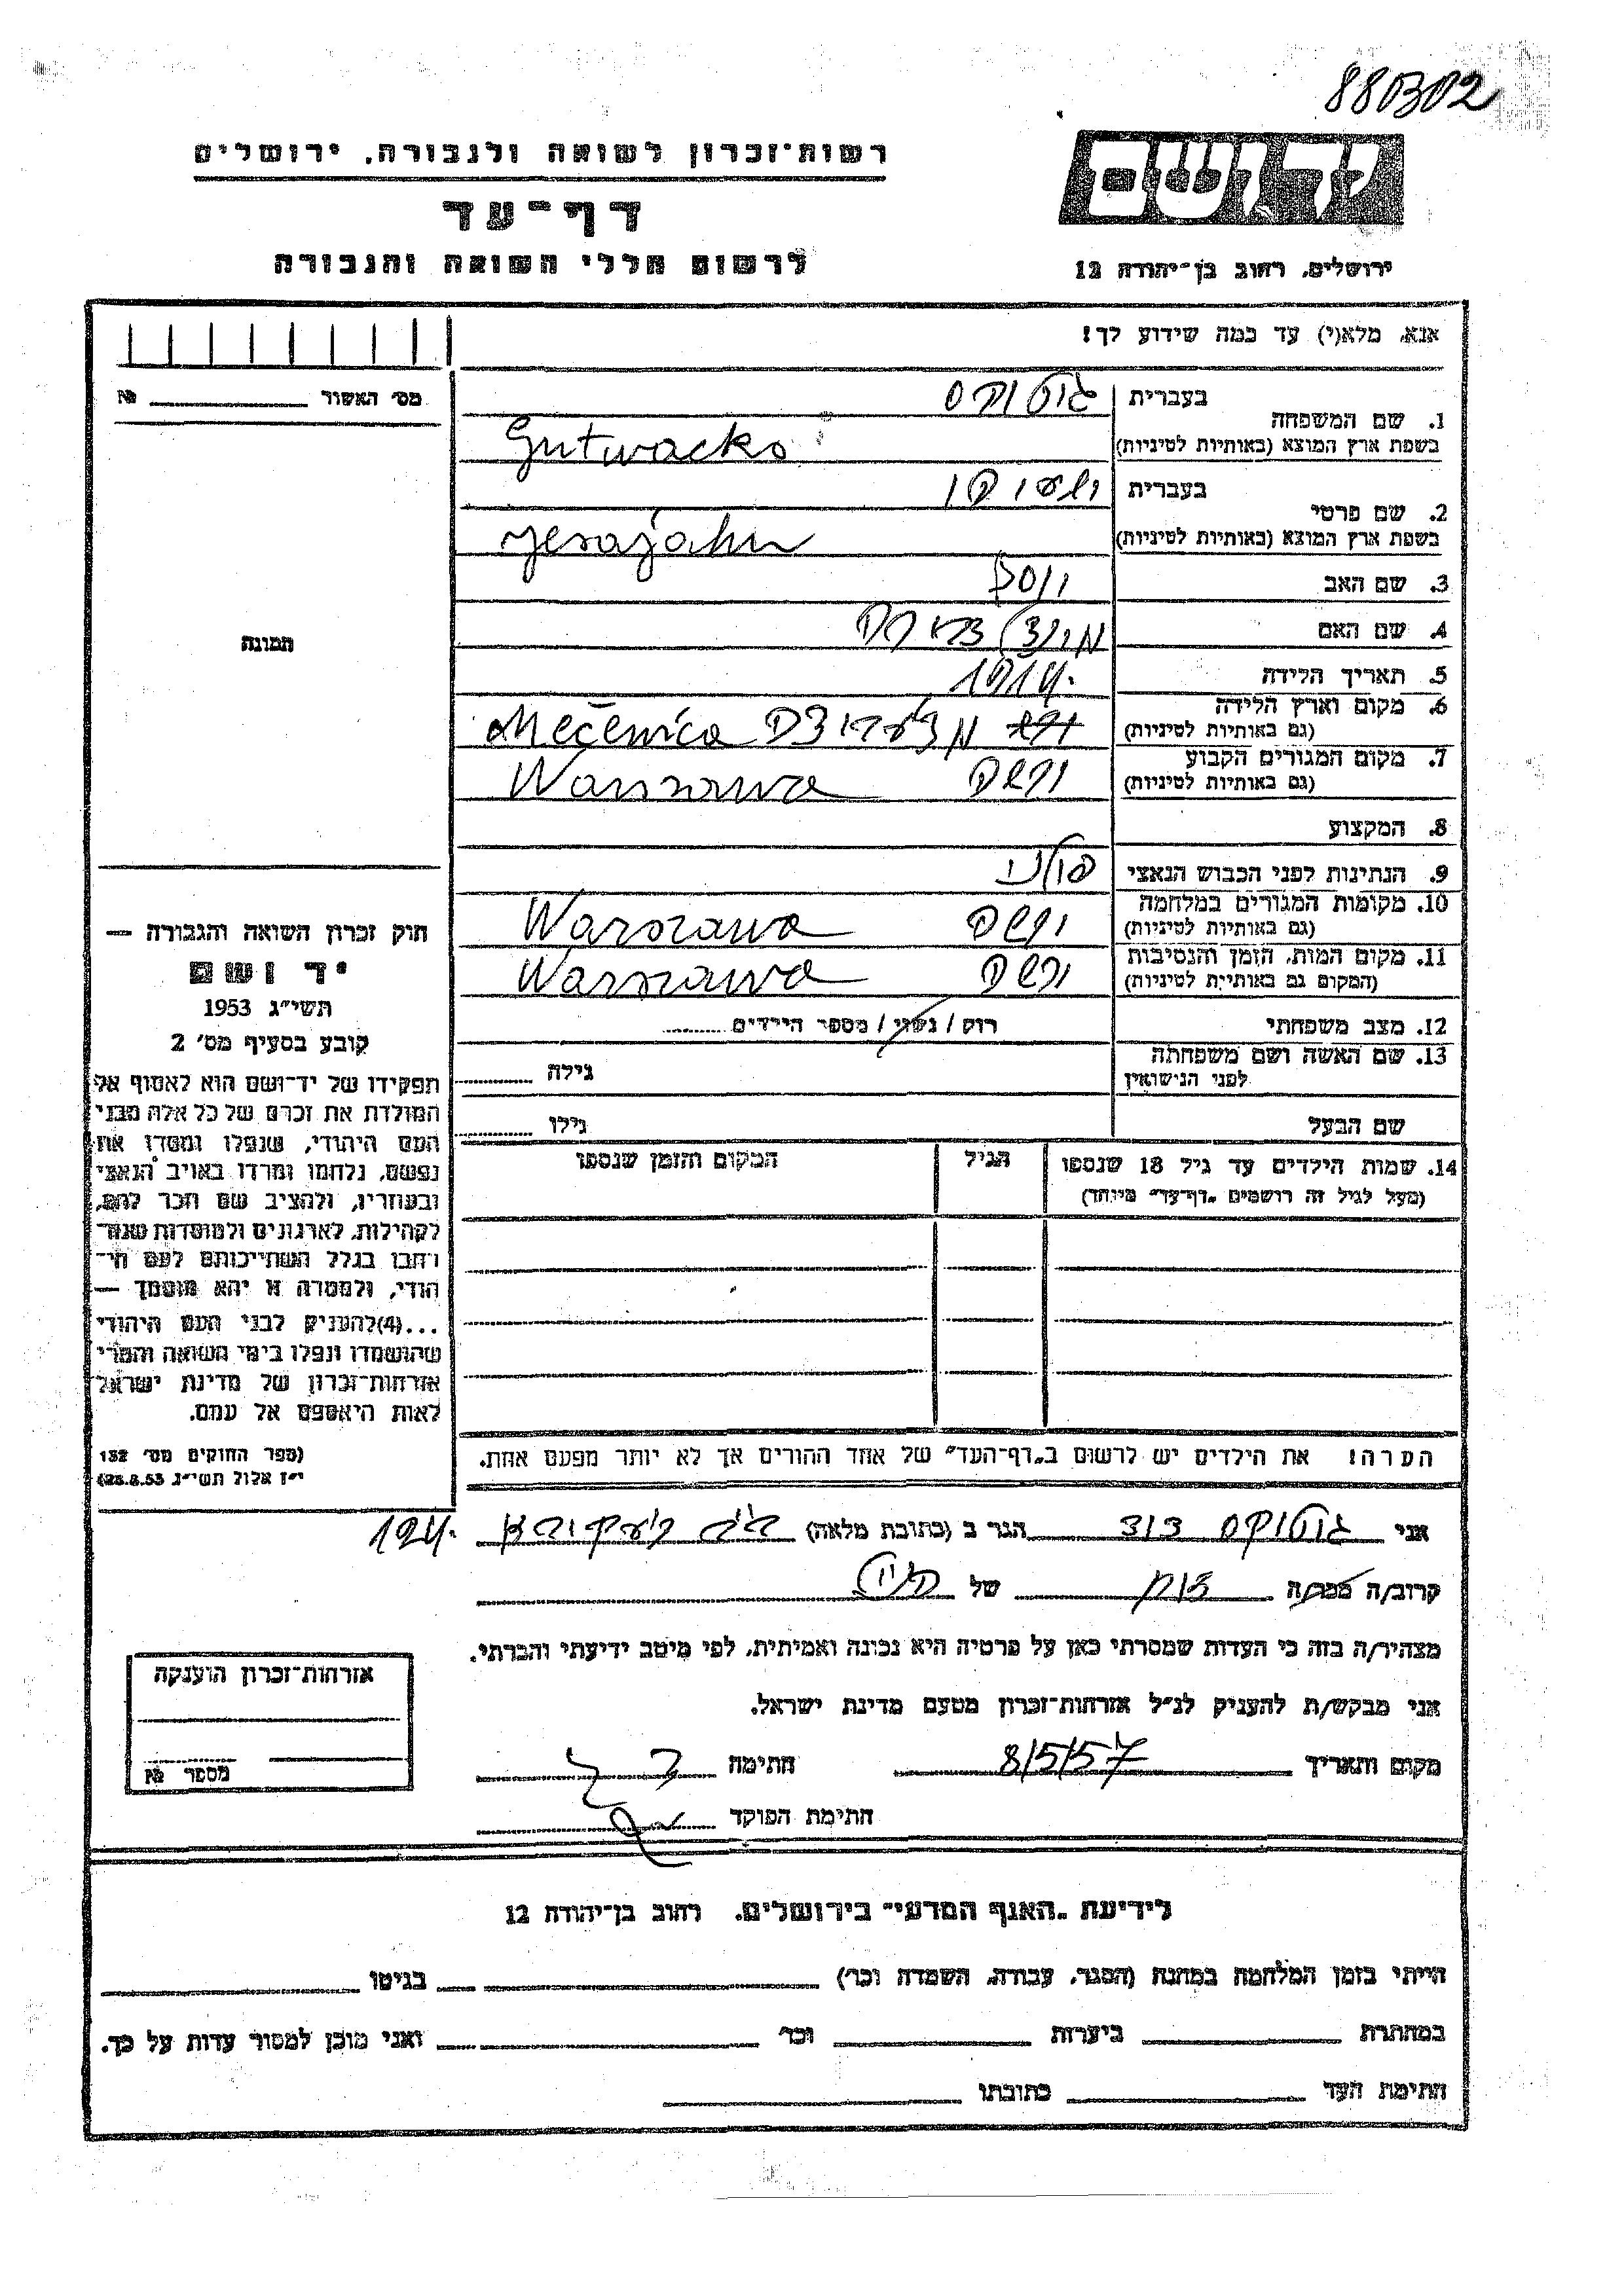 88B02
רשות־זכרון לשואה ולגבורה, ירושלים
יד ושם
דף־עד
לרשום חללי השואה והגבורה
ירושלים, רחוב בן־יהודה 12
אנא, מלא(י) עד כמה שידוע לך!
מס׳ האשור № 
1. שם המשפחה
בעברית גוטוקס
בשפת ארץ המוצא (באותיות לטיניות) Gutwacks
2. שם פרטי
בעברית
בשפת ארץ המוצא (באותיות לטיניות) Jesajahu
3. שם האב יוסף
4. שם האם
תמונה
5. תאריך הלידה
6. מקום וארץ הלידה
(גם באותיות לטיניות) Mečenica
7. מקום המגורים הקבוע ורשה Warszawa
(גם באותיות לטיניות)
8. המקצוע
9. הנתינות לפני הכבוש הנאצי פולני
10. מקומות המגורים במלחמה ורשה Warszawa
(גם באותיות לטיניות)
11. מקום המות, הזמן והנסיבות ורשה Warszawa
(המקום גם באותיות לטיניות)
12. מצב משפחתי רוק / נשוי / מספר הילדים
13. שם האשה ושם משפחתה
לפני הנישואין
גילה
שם הבעל גילו
14. שמות הילדים עד גיל 18 שנספו הגיל המקום והזמן שנספו
(מעל לגיל זה רושמים „דף־עד״ מיוחד)
חוק זכרון השואה והגבורה —
יד ושם
תשי״ג 1953
קובע בסעיף מס׳ 2
תפקידו של יד־ושם הוא לאסוף אל
המולדת את זכרם של כל אלה מבני
העם היהודי, שנפלו ומסרו את
נפשם, נלחמו ומרדו באויב הנאצי
ובעוזריו, ולהציב שם וזכר להם,
לקהילות, לארגונים ולמוסדות שנח־
רבו בגלל השתייכותם לעם הי־
הודי, ולמטרה זו יהא מוסמך —
...(4)להעניק לבני העם היהודי
שהושמדו ונפלו בימי השואה והמרי
אזרחות־זכרון של מדינת ישראל
לאות היאספם אל עמם.
(ספר החוקים מס׳ 132
י״ז אלול תשי״ג 28.8.53)
הערה! את הילדים יש לרשום ב„דף־העד״ של אחד ההורים אך לא יותר מפעם אחת.
אני גוטוקס דוד הגר ב (כתובת מלאה)
קרוב/ה מכר/ה של
מצהיר/ה בזה כי העדות שמסרתי כאן על פרטיה היא נכונה ואמיתית, לפי מיטב ידיעתי והכרתי.
אני מבקש/ת להעניק לנ״ל אזרחות־זכרון מטעם מדינת ישראל.
מקום ותאריך 8/5/57 חתימה
חתימת הפוקד
אזרחות־זכרון הוענקה
מספר №
לידיעת „האגף המדעי״ בירושלים, רחוב בן־יהודה 12
הייתי בזמן המלחמה במחנה (הסגר, עבודה, השמדה וכו׳) בגיטו
במחתרת ביערות וכו׳ ואני מוכן למסור עדות על כך.
חתימת העד כתובתו